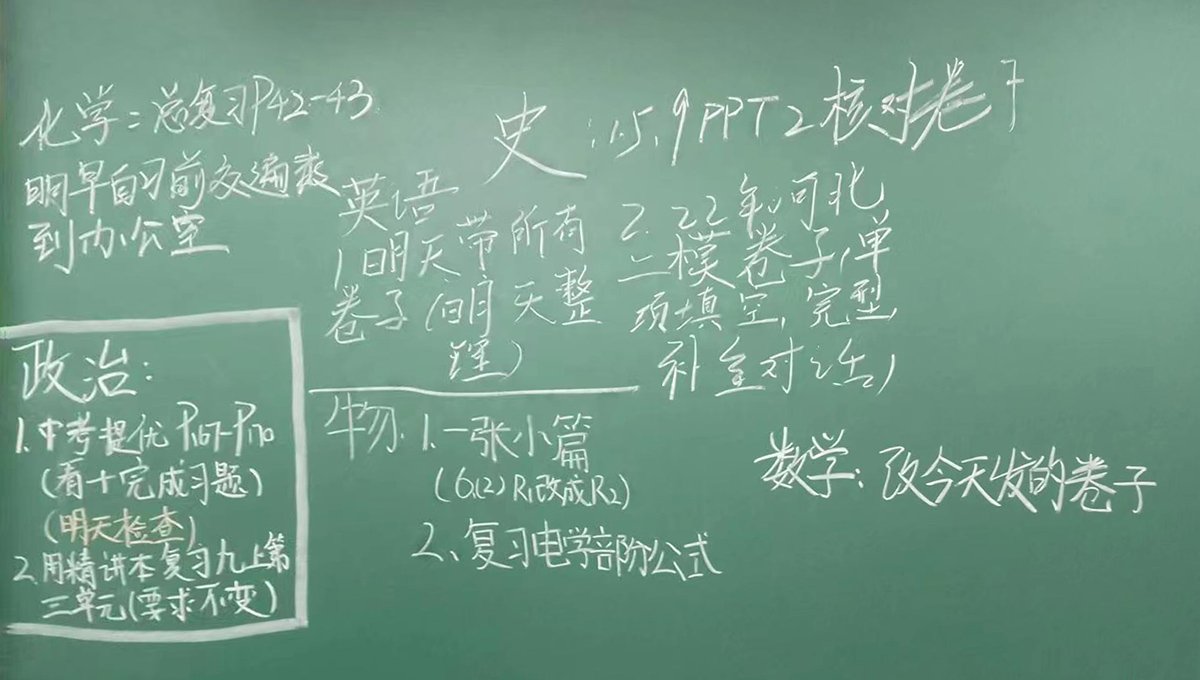 化学：总复习P42-43
明早自习前交遍数
到办公室
史：1.5.9PPT 2核对卷子
英语
1明天带所有
卷子(明天整
理)
2. 22年河北
二模卷子(单
项填空,完型
补全对话)
政治:
1.中考提优 P167-P170
(看+完成习题)
(明天检查)
2.用精讲本复习九上第
三单元(要求不变)
物: 1.一张小篇
(6.(2) R₁改成R₂)
2、复习电学部分公式
数学: 改今天发的卷子